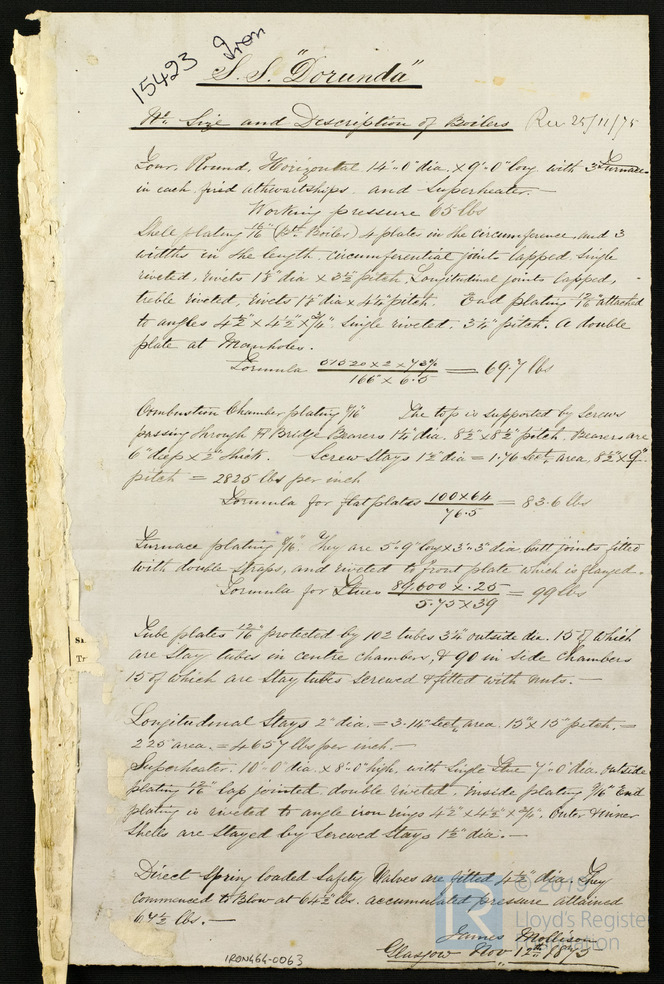 15423 Iron
S. S. "Dorunda"
No. Size and Description of Boilers Rec 25/11/75
Four, Round, Horizontal 14'-0" dia. x 9'-0" long with 3 Furnaces
in each fired athwartships. and Superheater. —
Working pressure 65 lbs
Shell plating (Boiler) 4 plates in the circumference and 3
widths in the length. circumferential joints lapped, Single
riveted, rivets 1⅛" dia x 3½ pitch, Longitudinal joints lapped,
treble riveted, rivets 1⅛" dia x 4¼" pitch. End plating attached
to angles 4½" x 4½" x ¾". Single riveted. 3¼" pitch. A double
plate at Manholes.
Formula 51520 x 2 x = 69.7 lbs
166 x 6.5
Combustion Chamber plating 9/16" The top is supported by Screws
passing through Bridge Bearers 1¼" dia. 8½" x 8½" pitch. Bearers are
6" deep x ½" thick. Screw Stays 1½" dia = 1.76 Sectl. area 8½" x 9"
pitch = 2825 lbs per inch
Formula for flat plates 100 x 64 = 83.6 lbs
76.5
Furnace plating They are 5'-9" long x 3'-3" dia. butt joints fitted
with double straps, and riveted to front plate which is flanged.
Formula for Flues 89600 x .25 = 99 lbs
5.75 x 39
Tube plates 12/16" protected by 102 tubes 3¼" outside dia. 15 of which
are Stay tubes in centre chambers, & 90 in side Chambers
15 of which are Stay tubes Screwed & fitted with nuts. —
Longitudinal Stays 2" dia. = 3.14" Sectl. area. 15" x 15" pitch. =
225 area. = 4657 lbs per inch. —
Superheater. 10'-0" dia. x 8'-0" high, with Single Flue 7'-0" dia. outside
plating lap jointed, double riveted. Inside plating 9/16" End
plating is riveted to angle iron rings 4½" x 4½" x ¾". Outer & inner
Shells are Stayed by Screwed Stays 1½" dia. —
Direct Spring loaded Safety Valves are fitted 4½" dia. They
commenced to Blow at 64½ lbs. accumulated pressure attained
67½ lbs. —
James Mollison
Glasgow Nov. 12th 1875
IRON464-0063
LR
© 2019
Lloyd's Register
Foundation